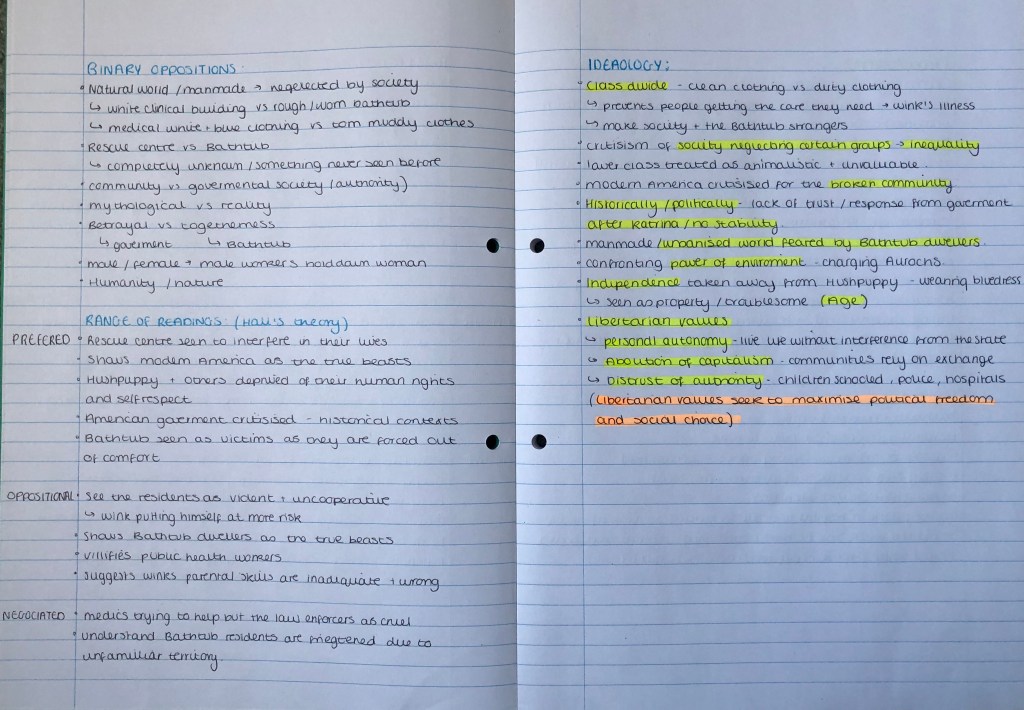 BINARY OPPOSITIONS:
• Natural world / manmade → negelected by society
↳ white clinical building vs rough/worn bathtub
↳ medical white + blue clothing vs torn muddy clothes
• Rescue centre vs Bathtub
↳ completely unknown / something never seen before
• community vs govermental society (authority)
• mythological vs reality
• Betrayal vs togetherness
↳ goverment ↳ Bathtub
• male / female → male workers hold down woman
• Humanity / nature
RANGE OF READINGS: (Hall's theory)
PREFERED • Rescue centre seen to interfere in their lives
• Shows modern America as the true beasts
• Hushpuppy + others deprived of their human rights
and self respect
• American goverment critisised - historical contexts
• Bathtub seen as victims as they are forced out
of comfort
OPPOSITIONAL • See the residents as violent + uncooperative
↳ wink putting himself at more risk
• Shows Bathtub dwellers as the true beasts
• villifies public health workers
• suggests winks parental skills are inadaquate + wrong
NEGOCIATED • medics trying to help but the law enforcers as cruel
• understand Bathtub residents are frightened due to
unfamiliar territory.
IDEAOLOGY:
• Class divide - clean clothing vs dirty clothing
↳ prevents people getting the care they need → wink's illness
↳ make society + the Bathtub strangers
• critisism of society neglecting certain groups → inequality
• lower class treated as animalistic + unvaluable
• modern America critisised for the broken community
• Historically / politically - lack of trust / response from goverment
after katrina / no stability
• manmade / urbanised world feared by Bathtub dwellers.
• confronting power of enviroment - charging Aurochs.
• Independence taken away from Hushpuppy - wearing blue dress
↳ seen as property / troublesome (Age)
• Libertarian values
↳ personal autonomy - live life without interference from the state
↳ Abolition of capitalism - communities rely on exchange
↳ Distrust of authority - children schooled, police, hospitals
(Libertarian values seek to maximise political freedom
and social choice)